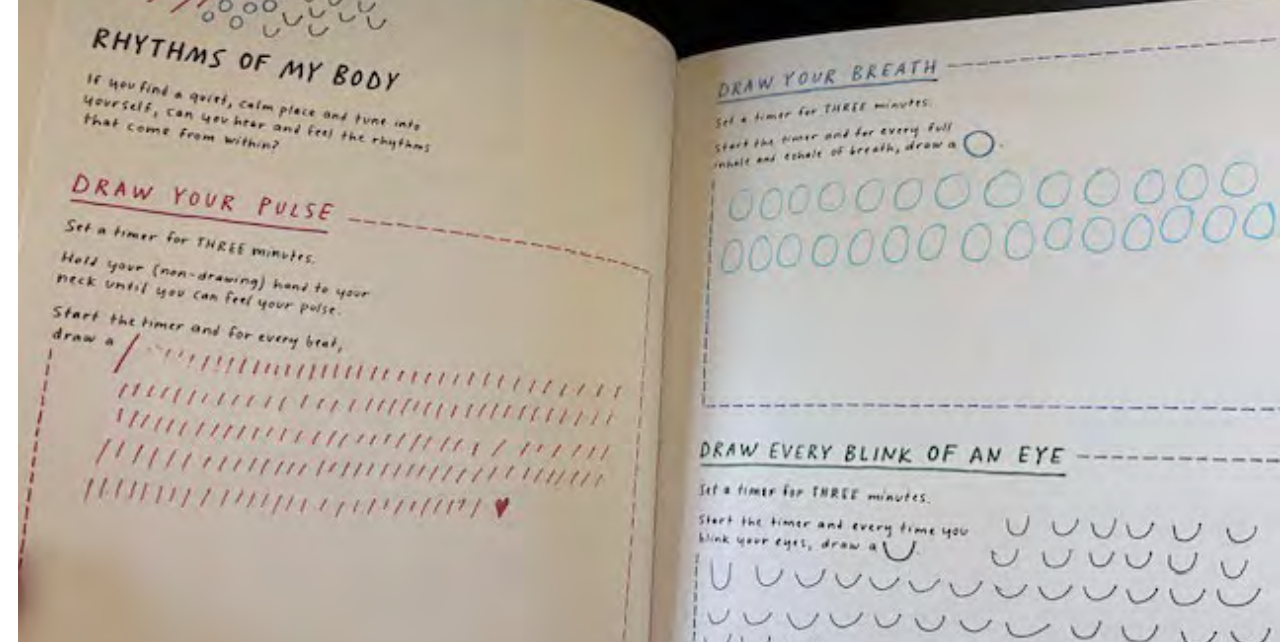 RHYTHMS OF MY BODY
If you find a quiet, calm place and tune into
yourself, can you hear and feel the rhythms
that come from within?
DRAW YOUR PULSE
Set a timer for THREE minutes.
Hold your (non-drawing) hand to your
neck until you can feel your pulse.
Start the timer and for every beat,
draw a /
DRAW YOUR BREATH
Set a timer for THREE minutes.
Start the timer and for every full
inhale and exhale of breath, draw a O.
DRAW EVERY BLINK OF AN EYE
Set a timer for THREE minutes.
Start the timer and every time you
blink your eyes, draw a U.